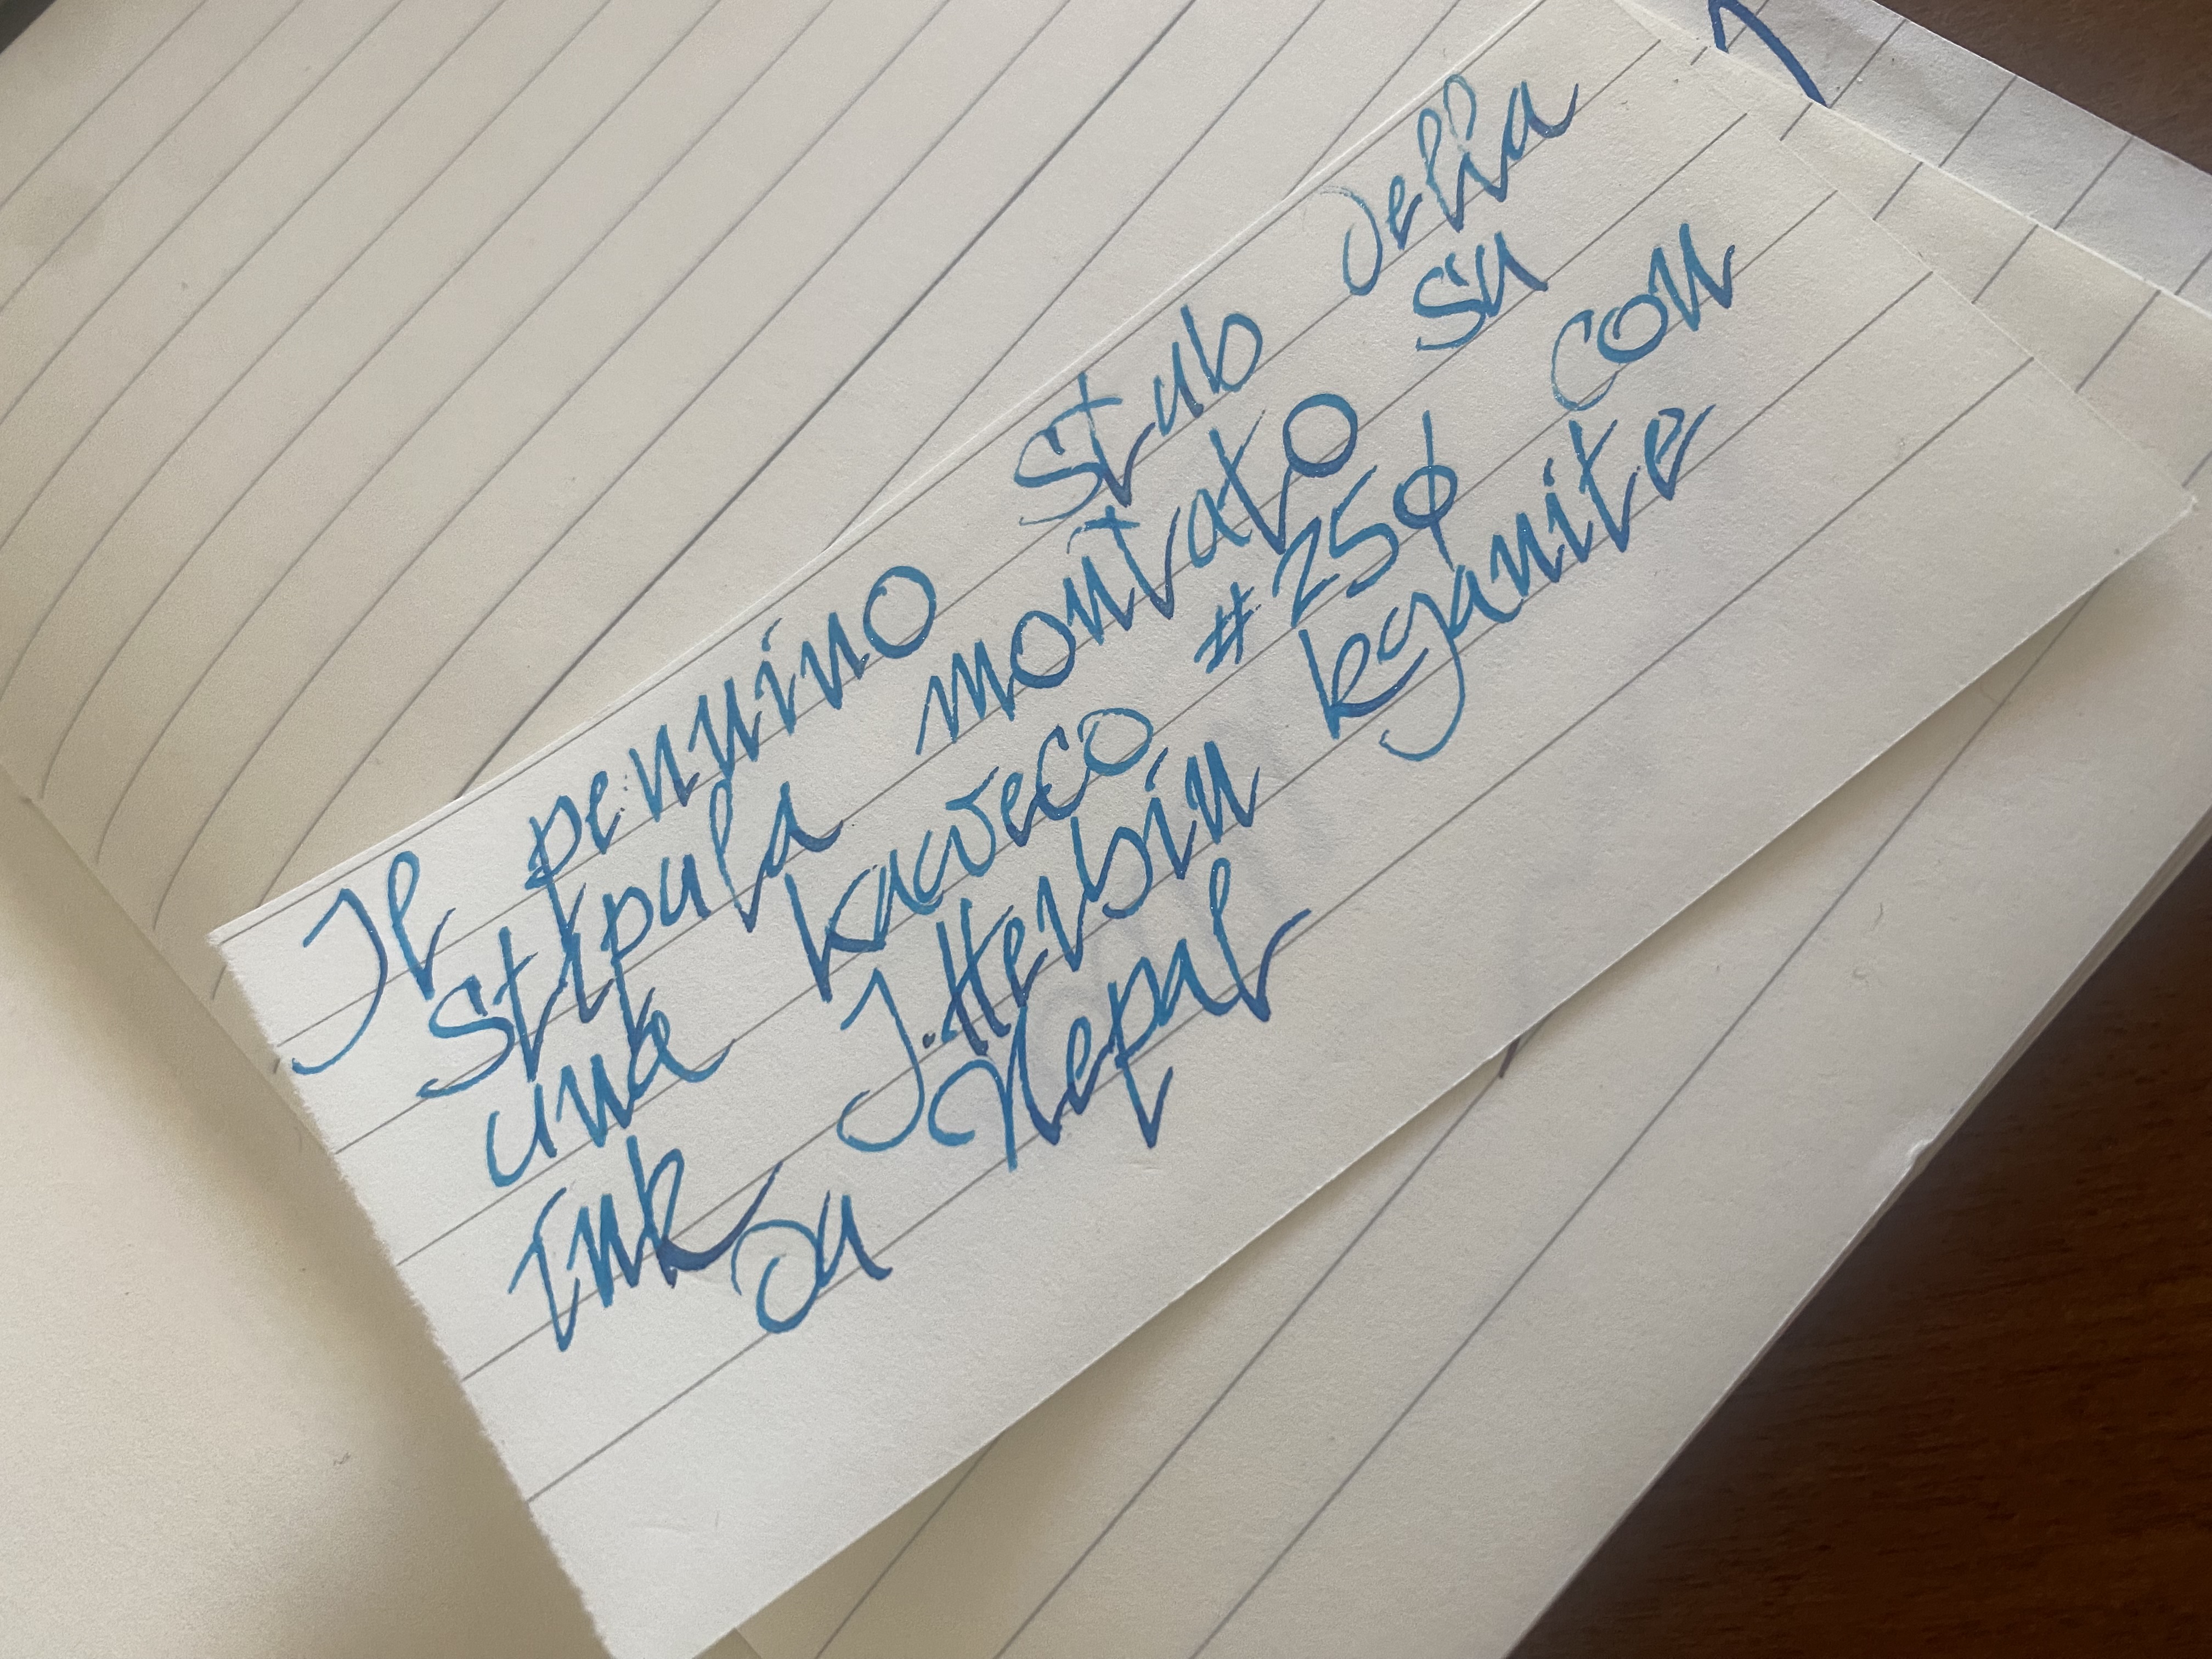 Il pennino stub della
Stipula montato su
una kaweco #250 con
Ink J.Herbin kyanite
du Népal